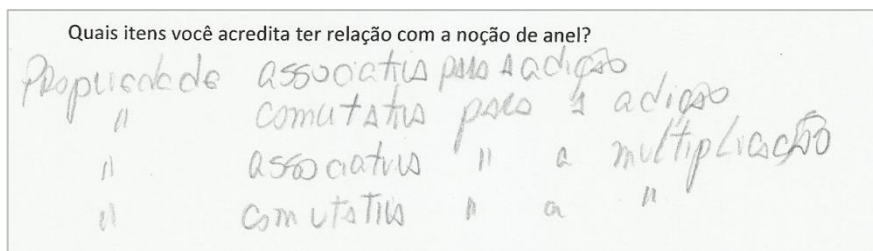 Quais itens você acredita ter relação com a noção de anel?
Propriedade associativa para a adição
" comutativa para a adição
" associativa " a multiplicação
" comutativa " a "